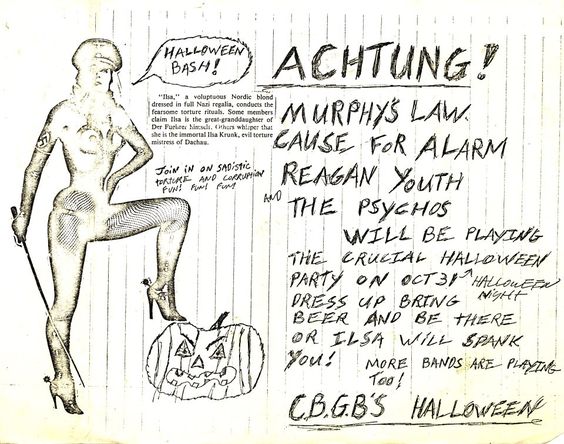 HALLOWEEN
BASH!
"Ilsa," a voluptuous Nordic blond
dressed in full Nazi regalia, conducts the
fearsome torture rituals. Some members
claim Ilsa is the great-granddaughter of
Der Fuehrer himself. Others whisper that
she is the immortal Ilsa Krunk, evil torture
mistress of Dachau.
JOIN IN ON SADISTIC
TORTURE AND CORRUPTION
FUN! FUN! FUN!
ACHTUNG!
MURPHY'S LAW
CAUSE FOR ALARM
REAGAN YOUTH
AND THE PSYCHOS
WILL BE PLAYING
THE CRUCIAL HALLOWEEN
PARTY ON OCT 31 → HALLOWEEN NIGHT
DRESS UP BRING
BEER AND BE THERE
OR ILSA WILL SPANK
YOU! MORE BANDS ARE PLAYING
TOO!
C.B.G.B'S HALLOWEEN